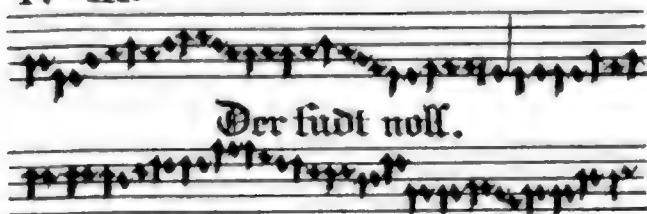 Der fudt noll.